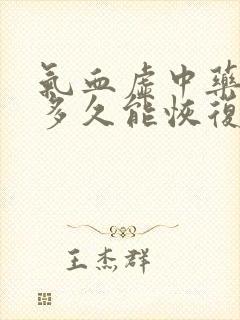 氣血虛中藥
多久能恢復
王杰群